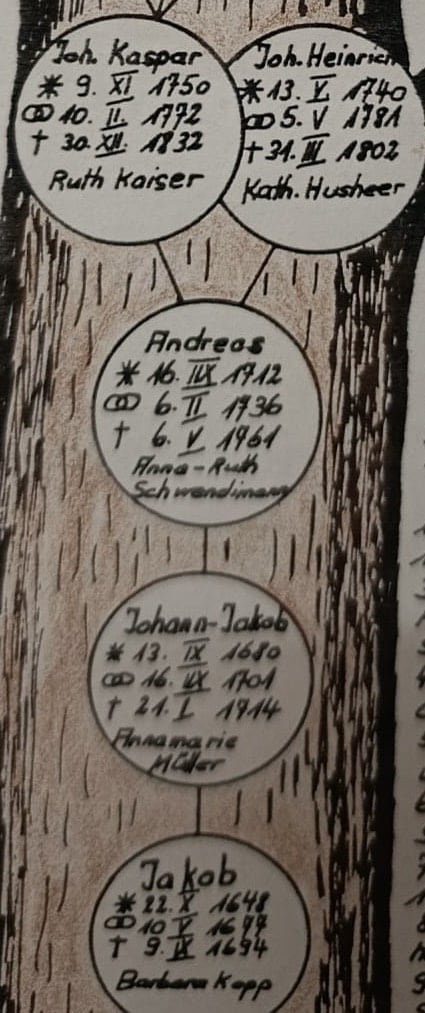 Joh. Kaspar
* 9. XI 1750
⚭ 10. II. 1772
† 30. XII. 1832
Ruth Kaiser
Joh. Heinrich
* 13. V. 1740
⚭ 5. V 1781
† 31. III 1802
Kath. Husheer
Andreas
* 16. IIX 1712
⚭ 6. II 1736
† 6. V 1761
Anna-Ruth
Schwendimann
Johann-Jakob
* 13. IX 1680
⚭ 16. IIX 1701
† 21. I 1714
Annamarie
Müller
Jakob
* 22. X 1648
⚭ 10 V 1677
† 9. IX 1694
Barbara Kopp